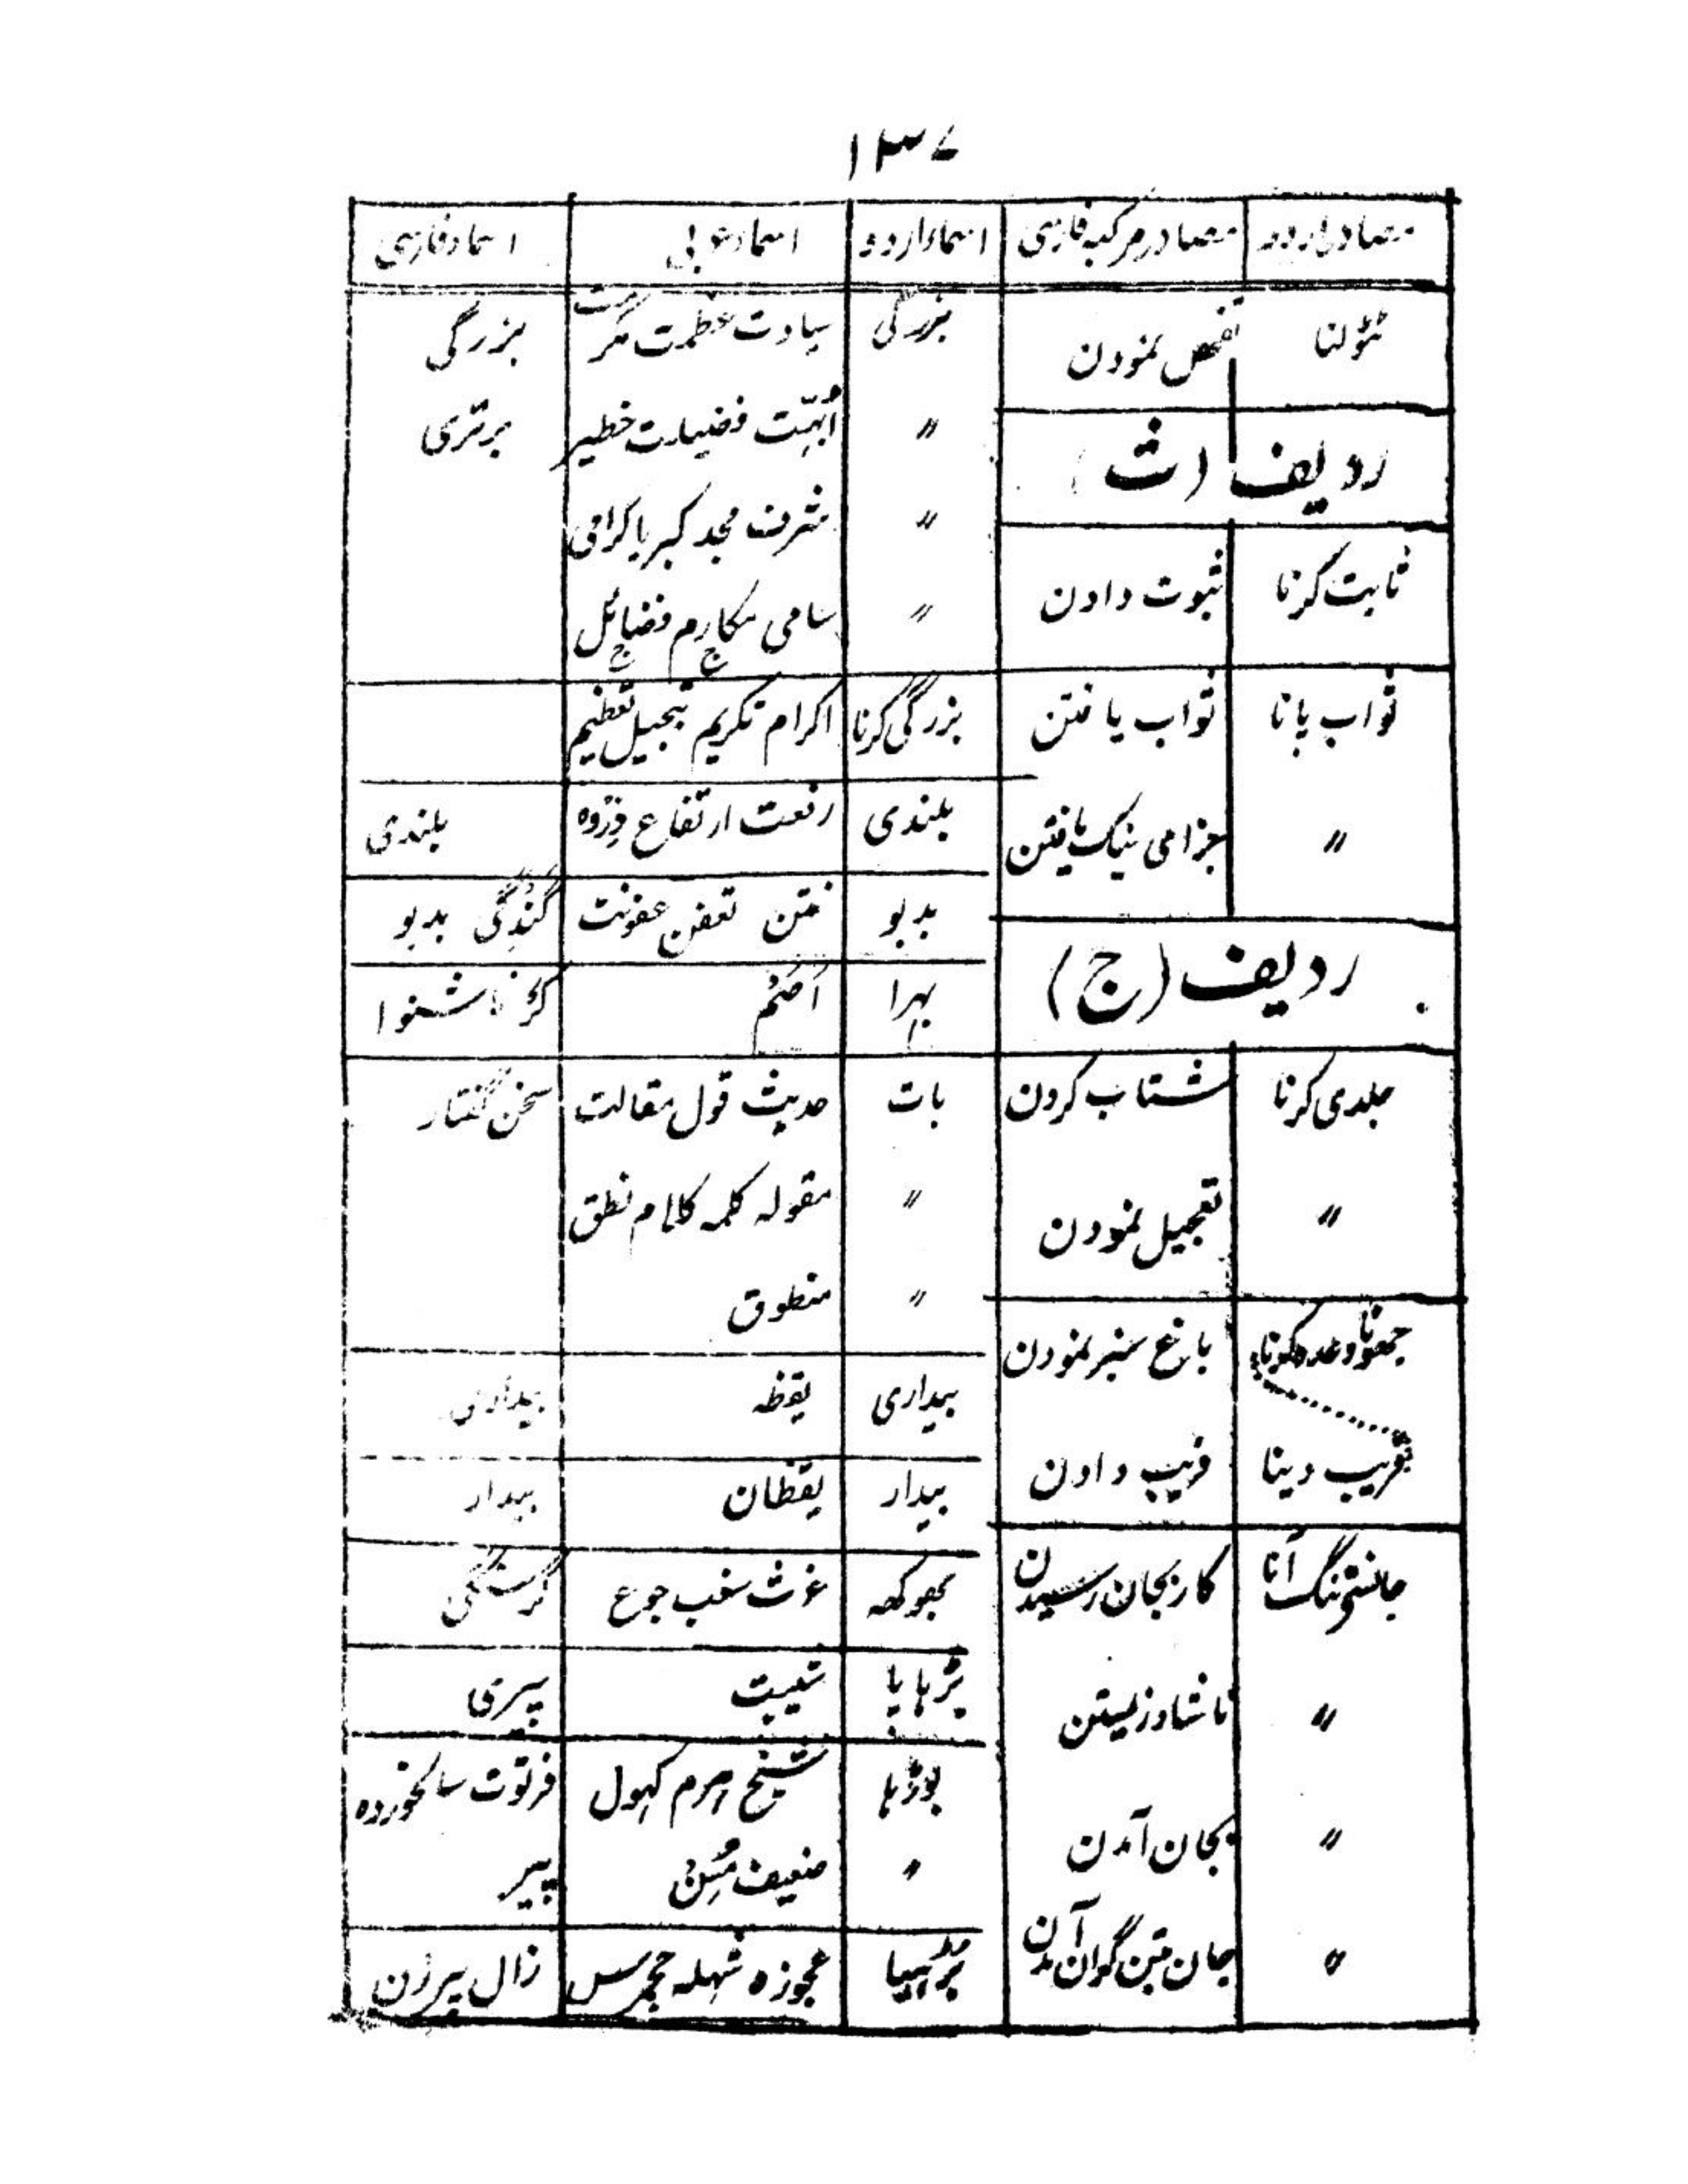 ۱۳۷
مصادر اردو | مصادر مرکبہ فارسی | اسماء اردو | اسماء عربی | اسماء فارسی
ٹٹولنا | تفحص نمودن
ردیف (ث)
ثابت کرنا | ثبوت دادن
ثواب پانا | ثواب یافتن
〃 | جزای نیک یافتن
ردیف (ج)
جلدی کرنا | شتاب کردن
〃 | تعجیل نمودن
جھوٹا وعدہ کرنا | باغ سبز نمودن
فریب دینا | فریب دادن
جانسے تنگ آنا | کار بجان رسیدن
〃 | ناشاد زیستن
〃 | بجان آمدن
〃 | جان بتن گران آمدن
بزرگی | سیادت عظمت مکرمت | بزرگی
〃 | اُبہّت فضیلت خطیر | برتری
〃 | شرف مجد کبریا کرامی
〃 | سامی مکارم فضائل
بزرگی کرنا | اکرام تکریم تبجیل تعظیم
بلندی | رفعت ارتفاع ذروہ | بلندی
بدبو | نتن تعفن عفونت | گندگی بدبو
بہرا | اَصَمّ | کر ناشنوا
بات | حدیث قول مقالت | سخن گفتار
〃 | مقولہ کلمہ کلام نطق
〃 | منطوق
بیداری | یقظہ | بیداری
بیدار | یقظان | بیدار
بھوکھ | غرث سغب جوع | گرسنگی
بڑہاپا | شیبت | پیری
بوڑہا | شیخ ہرم کہول | فرتوت سالخوردہ
〃 | ضعیف مُسِنّ | پیر
بڑہیا | عجوزہ شہلہ | زال پیرزن